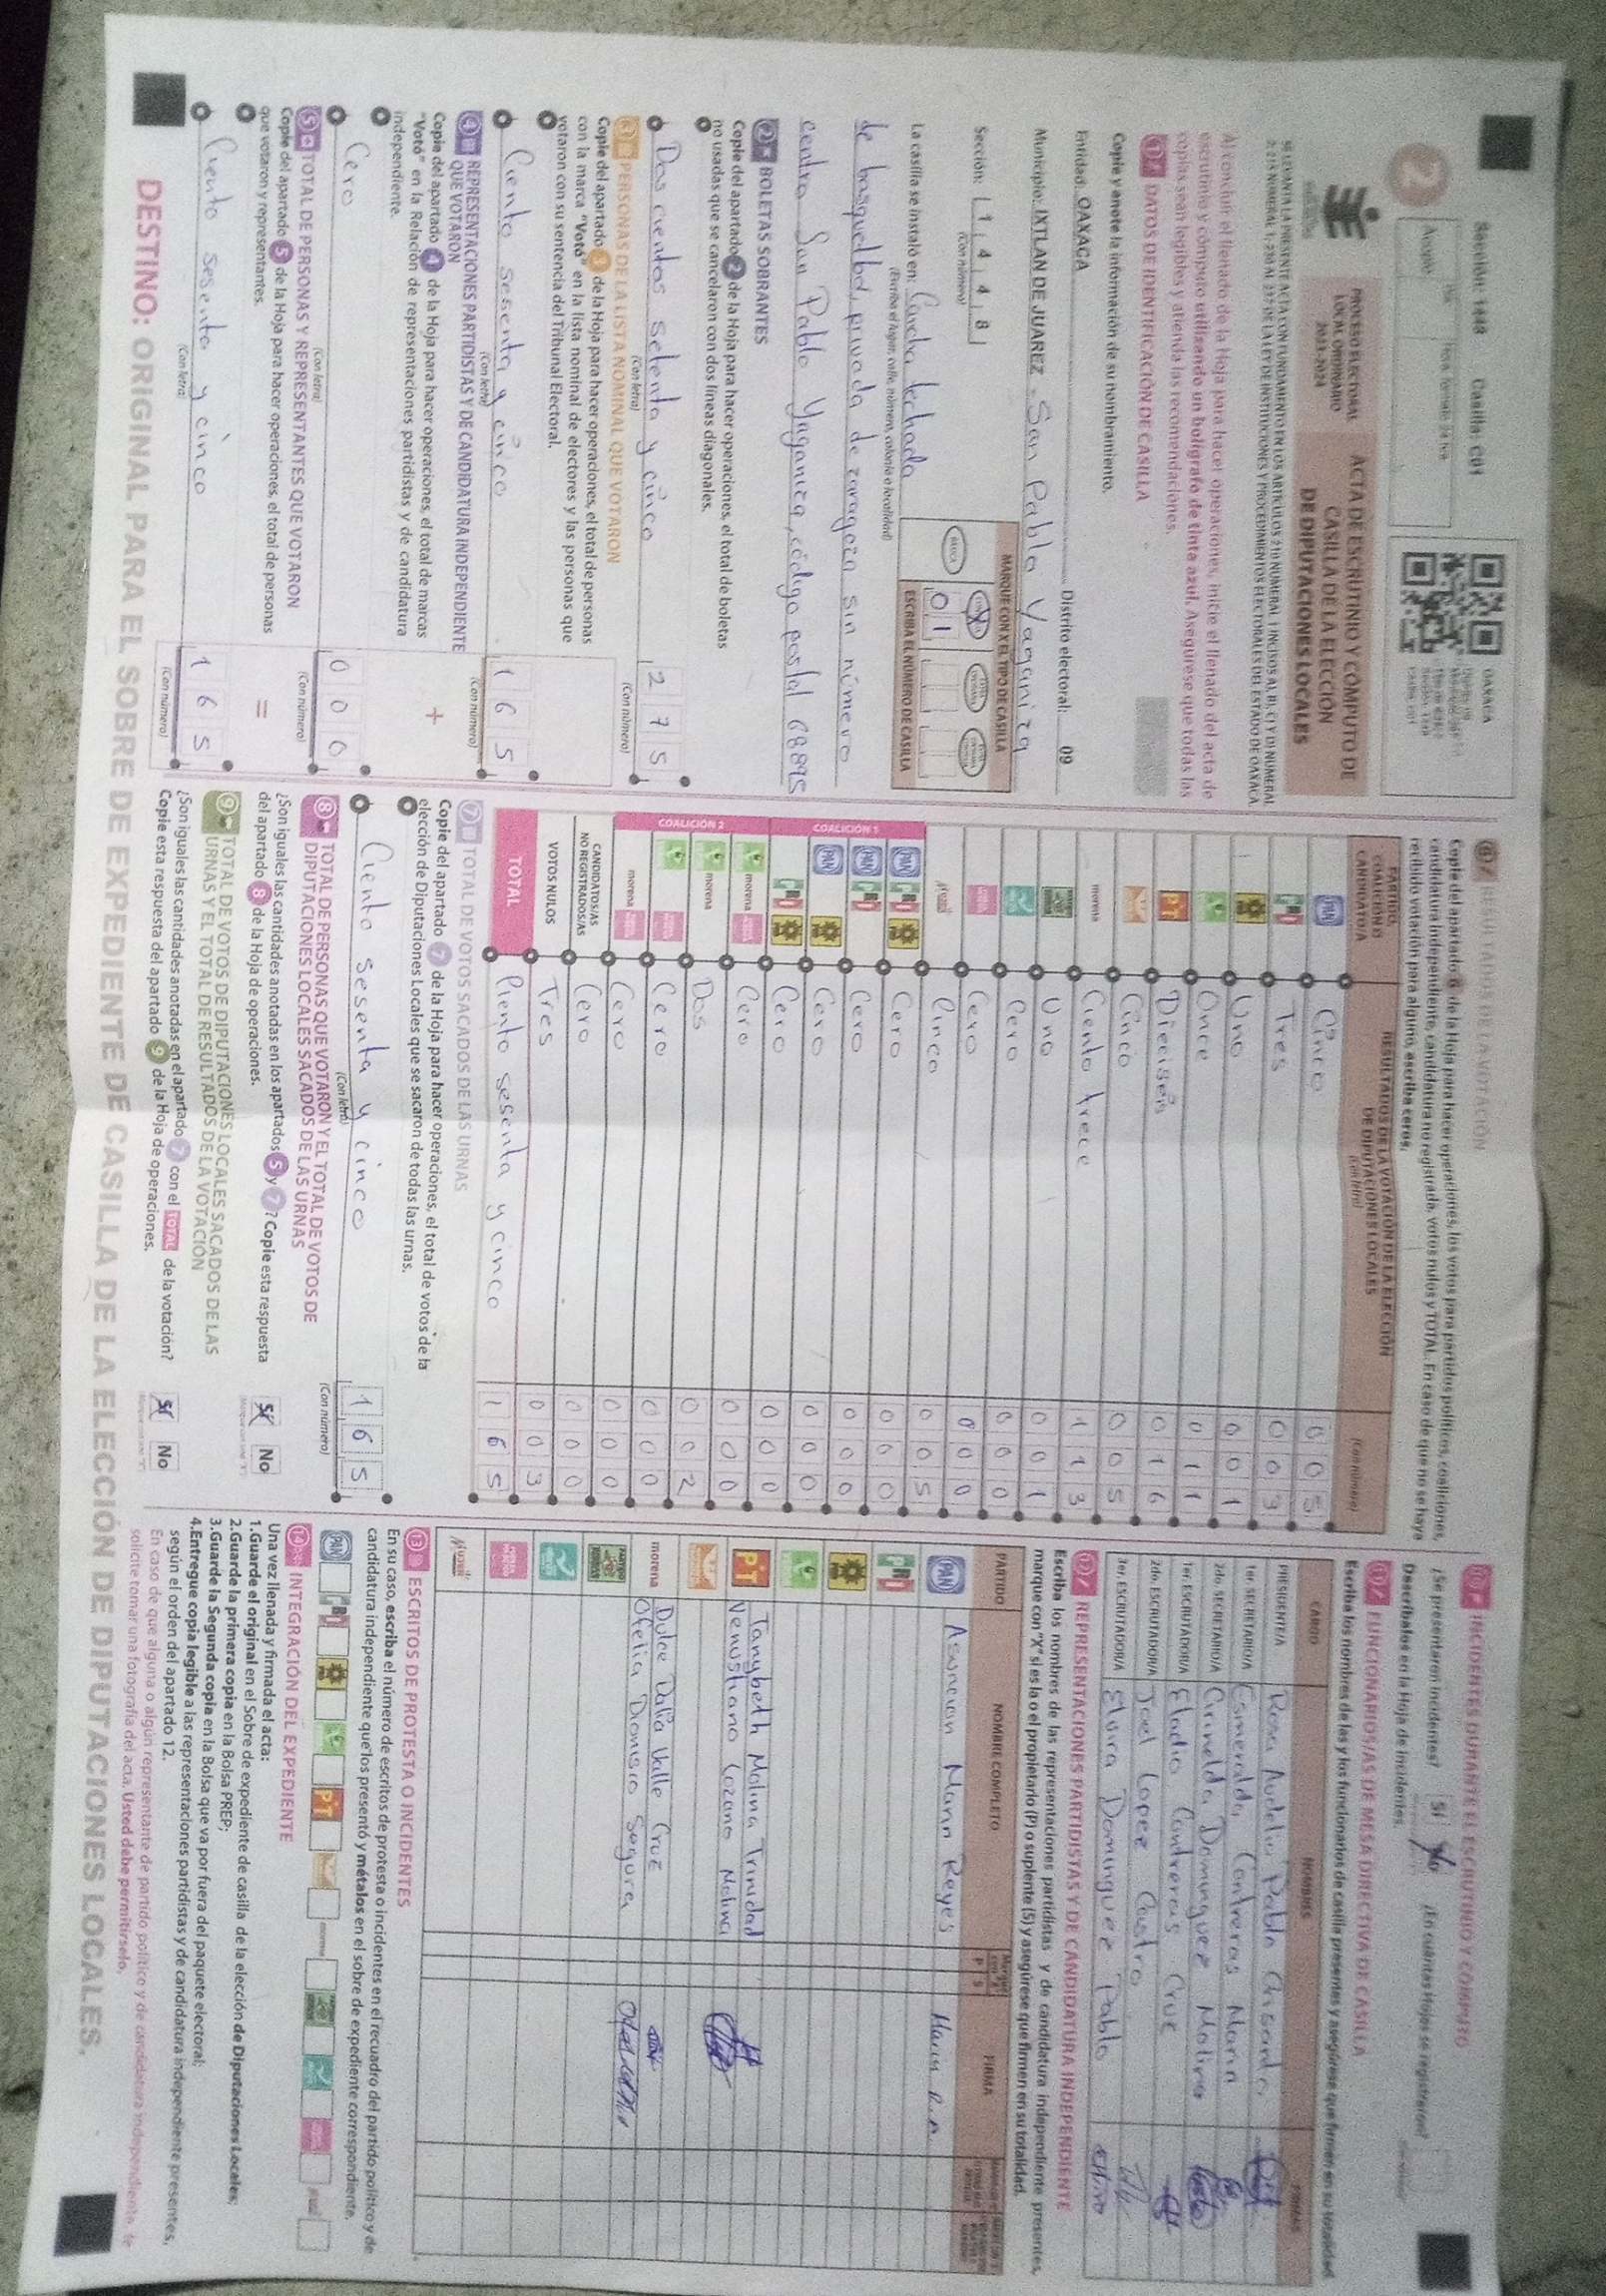 Sección: 1448 Casilla: C01
PROCESO ELECTORAL
LOCAL ORDINARIO
2023-2024
ACTA DE ESCRUTINIO Y CÓMPUTO DE
CASILLA DE LA ELECCIÓN
DE DIPUTACIONES LOCALES
OAXACA
Al concluir el llenado de la Hoja para hacer operaciones, inicie el llenado del acta de
escrutinio y cómputo utilizando un bolígrafo de tinta azul. Asegúrese que todas las
copias sean legibles y atienda las recomendaciones.
1 DATOS DE IDENTIFICACIÓN DE CASILLA
Copie y anote la información de su nombramiento.
Entidad: OAXACA Distrito electoral: 09
Municipio: IXTLAN DE JUAREZ San Pablo Yaganiza
Sección: 1 4 4 8
(Con número)
MARQUE CON X EL TIPO DE CASILLA
ESCRIBA EL NÚMERO DE CASILLA
0 1
La casilla se instaló en: Cancha techada
(Escriba el lugar: calle, número, colonia o localidad)
de basquetbol, privada de zaragoza sin número
centro San Pablo Yaganiza, código postal 68895
2 BOLETAS SOBRANTES
Copie del apartado 2 de la Hoja para hacer operaciones, el total de boletas
no usadas que se cancelaron con dos líneas diagonales.
Dos cientos setenta y cinco 2 7 5
(Con letra) (Con número)
3 PERSONAS DE LA LISTA NOMINAL QUE VOTARON
Copie del apartado 3 de la Hoja para hacer operaciones, el total de personas
con la marca "Votó" en la lista nominal de electores y las personas que
votaron con su sentencia del Tribunal Electoral.
Ciento sesenta y cinco 1 6 5
(Con letra) (Con número)
4 REPRESENTACIONES PARTIDISTAS Y DE CANDIDATURA INDEPENDIENTE
QUE VOTARON
Copie del apartado 4 de la Hoja para hacer operaciones, el total de marcas
"Votó" en la Relación de representaciones partidistas y de candidatura
independiente.
+
Cero 0 0 0
(Con letra) (Con número)
5 TOTAL DE PERSONAS Y REPRESENTANTES QUE VOTARON
Copie del apartado 5 de la Hoja para hacer operaciones, el total de personas
que votaron y representantes.
=
Ciento sesenta y cinco 1 6 5
(Con letra) (Con número)
6 RESULTADOS DE LA VOTACIÓN
Copie del apartado 6 de la Hoja para hacer operaciones, los votos para partidos políticos, coaliciones,
candidatura independiente, candidatura no registrada, votos nulos y TOTAL. En caso de que no se haya
recibido votación para alguno, escriba ceros.
PARTIDO, COALICIÓN O CANDIDATO/A
RESULTADOS DE LA VOTACIÓN DE LA ELECCIÓN
DE DIPUTACIONES LOCALES
(Con letra) (Con número)
PAN Cinco 0 0 5
PRI Tres 0 0 3
Uno 0 0 1
Once 0 1 1
PT Dieciséis 0 1 6
Cinco 0 0 5
morena Ciento trece 1 1 3
Uno 0 0 1
Cero 0 0 0
Cero 0 0 0
Cinco 0 0 5
COALICIÓN 1
PAN PRI Cero 0 0 0
PAN PRI Cero 0 0 0
PAN Cero 0 0 0
PRI Cero 0 0 0
COALICIÓN 2
morena Cero 0 0 0
morena Dos 0 0 2
Cero 0 0 0
morena Cero 0 0 0
CANDIDATOS/AS
NO REGISTRADOS/AS Cero 0 0 0
VOTOS NULOS Tres 0 0 3
TOTAL Ciento sesenta y cinco 1 6 5
7 TOTAL DE VOTOS SACADOS DE LAS URNAS
Copie del apartado 7 de la Hoja para hacer operaciones, el total de votos de la
elección de Diputaciones Locales que se sacaron de todas las urnas.
Ciento sesenta y cinco 1 6 5
(Con letra) (Con número)
8 TOTAL DE PERSONAS QUE VOTARON Y EL TOTAL DE VOTOS DE
DIPUTACIONES LOCALES SACADOS DE LAS URNAS
¿Son iguales las cantidades anotadas en los apartados 5 y 7? Copie esta respuesta
del apartado 8 de la Hoja de operaciones. Sí No
9 TOTAL DE VOTOS DE DIPUTACIONES LOCALES SACADOS DE LAS
URNAS Y EL TOTAL DE RESULTADOS DE LA VOTACIÓN
¿Son iguales las cantidades anotadas en el apartado 7 con el TOTAL de la votación?
Copie esta respuesta del apartado 9 de la Hoja de operaciones. Sí No
10 INCIDENTES DURANTE EL ESCRUTINIO Y CÓMPUTO
¿Se presentaron incidentes? Sí No ¿En cuántas Hojas se registraron?
Descríbalos en la Hoja de incidentes.
11 FUNCIONARIOS/AS DE MESA DIRECTIVA DE CASILLA
Escriba los nombres de las y los funcionarios de casilla presentes y asegúrese que firmen en su totalidad
CARGO NOMBRES FIRMAS
PRESIDENTE/A Rosa Audelia Pablo Crisanto
1er. SECRETARIO/A Esmeralda Contreras Marin
2do. SECRETARIO/A Grinelda Dominguez Molina
1er. ESCRUTADOR/A Eladio Contreras Cruz
2do. ESCRUTADOR/A Joel Lopez Castro
3er. ESCRUTADOR/A Elvira Dominguez Pablo
12 REPRESENTACIONES PARTIDISTAS Y DE CANDIDATURA INDEPENDIENTE
Escriba los nombres de las representaciones partidistas y de candidatura independiente presentes,
marque con "X" si es la o el propietario (P) o suplente (S) y asegúrese que firmen en su totalidad.
PARTIDO NOMBRE COMPLETO P S FIRMA
PAN Asuncion Marin Reyes
PRI
PT Tanybeth Molina Trinidad
Venustiano Lozano Molina
morena Dulce Dalia Valle Cruz
Ofelia Dionisio Segura
13 ESCRITOS DE PROTESTA O INCIDENTES
En su caso, escriba el número de escritos de protesta o incidentes en el recuadro del partido político y de
candidatura independiente que los presentó y métalos en el sobre de expediente correspondiente.
PAN PRI PT morena
14 INTEGRACIÓN DEL EXPEDIENTE
Una vez llenada y firmada el acta:
1.Guarde el original en el Sobre de expediente de casilla de la elección de Diputaciones Locales;
2.Guarde la primera copia en la Bolsa PREP;
3.Guarde la Segunda copia en la Bolsa que va por fuera del paquete electoral;
4.Entregue copia legible a las representaciones partidistas y de candidatura independiente presentes,
según el orden del apartado 12.
En caso de que alguna o algún representante de partido político y de candidatura independiente, le
solicite tomar una fotografía del acta, Usted debe permitírselo.
DESTINO: ORIGINAL PARA EL SOBRE DE EXPEDIENTE DE CASILLA DE LA ELECCIÓN DE DIPUTACIONES LOCALES.